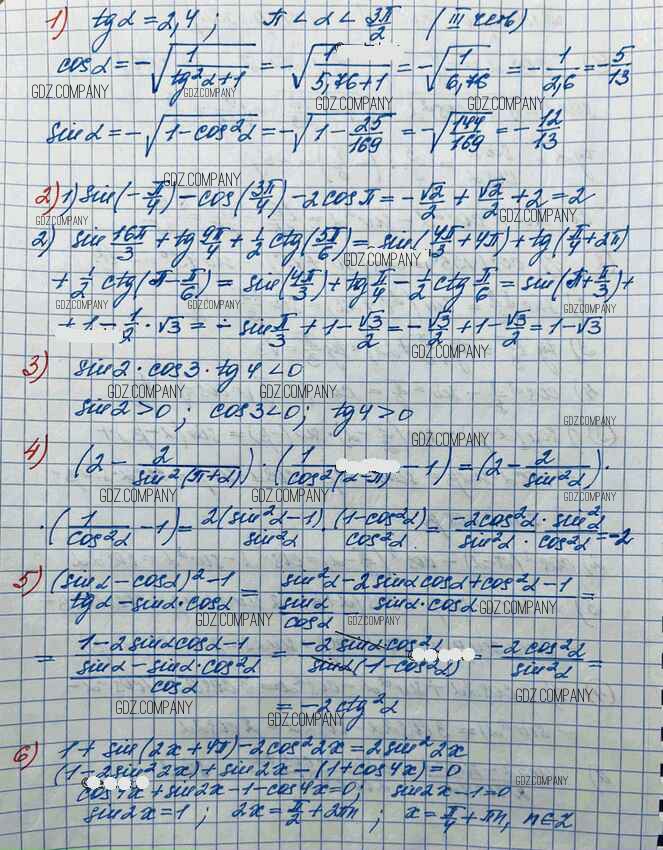 1) tgα = 2,4 ; π < α < 3π/2 (III четв)
cosα = -√(1/(tg²α+1)) = -√(1/(5,76+1)) = -√(1/6,76) = -1/2,6 = -5/13
GDZ.COMPANY GDZ.COMPANY GDZ.COMPANY GDZ.COMPANY
sinα = -√(1-cos²α) = -√(1-25/169) = -√(144/169) = -12/13
GDZ.COMPANY
2) 1) sin(-π/4) - cos(3π/4) - 2cosπ = -√2/2 + √2/2 + 2 = 2
GDZ.COMPANY GDZ.COMPANY
2) sin 16π/3 + tg 9π/4 + 1/2 ctg(5π/6) = sin(4π/3 + 4π) + tg(π/4 + 2π)
GDZ.COMPANY GDZ.COMPANY
+ 1/2 ctg(π - π/6) = sin(4π/3) + tg π/4 - 1/2 ctg π/6 = sin(π + π/3) +
GDZ.COMPANY GDZ.COMPANY GDZ.COMPANY GDZ.COMPANY
+ 1 - 1/2 · √3 = - sin π/3 + 1 - √3/2 = -√3/2 + 1 - √3/2 = 1 - √3
GDZ.COMPANY
3) sin2 · cos3 · tg4 < 0
GDZ.COMPANY GDZ.COMPANY
sin2 > 0 ; cos3 < 0 ; tg4 > 0
GDZ.COMPANY
GDZ.COMPANY
4) (2 - 2/sin²(π+α)) · (1/cos²(α-π) - 1) = (2 - 2/sin²α) ·
GDZ.COMPANY GDZ.COMPANY GDZ.COMPANY
· (1/cos²α - 1) = 2(sin²α-1)/sin²α · (1-cos²α)/cos²α = -2cos²α · sin²α/sin²α · cos²α = -2
5) (sinα - cosα)² - 1/tgα - sinα · cosα = sin²α - 2sinαcosα + cos²α - 1/sinα/cosα - sinα · cosα =
GDZ.COMPANY GDZ.COMPANY GDZ.COMPANY
= 1 - 2sinαcosα - 1/sinα - sinα · cos²α/cosα = -2 sinα cos²α/sinα(1-cos²α) = -2cos²α/sin²α =
GDZ.COMPANY
= -2ctg²α
GDZ.COMPANY GDZ.COMPANY
6) 1 + sin(2x + 4π) - 2cos²2x = 2sin²2x
(1 - 2sin²2x) + sin2x - (1 + cos4x) = 0
GDZ.COMPANY
cos4x + sin2x - 1 - cos4x = 0; sin2x - 1 = 0
sin2x = 1 ; 2x = π/2 + 2πn ; x = π/4 + πn, n∈Z